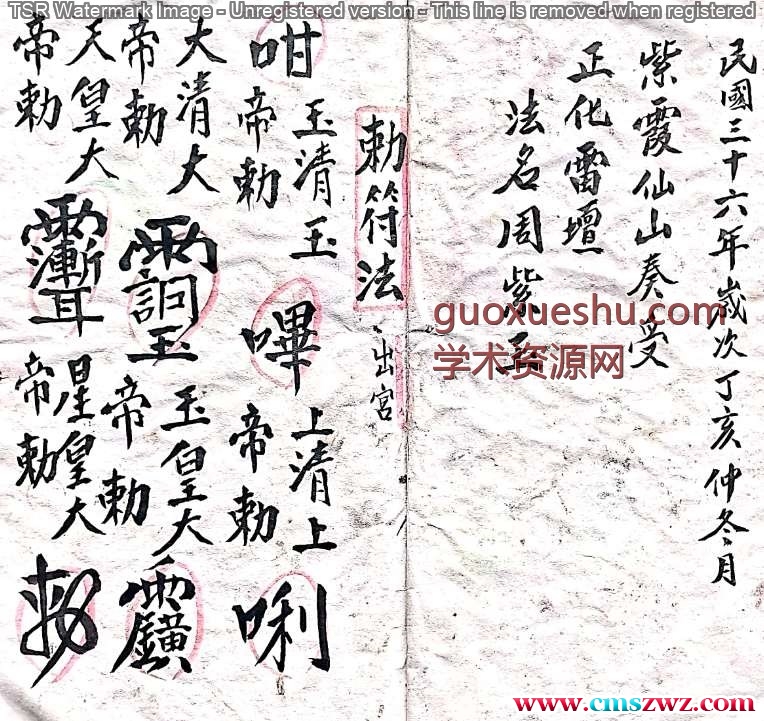 TSR Watermark Image - Unregistered version - This line is removed when registered
民國三十六年歲次丁亥仲冬月
紫霞仙山奏受
正化雷壇
法名周紫
勅符法
出宮
咁
玉清玉
帝勅
嗶
上清上
帝勅
唎
大清大
帝勅
玉皇大
帝勅
天皇大
帝勅
星皇大
帝勅
guoxueshu.com
学术资源网
www.cmszwz.com